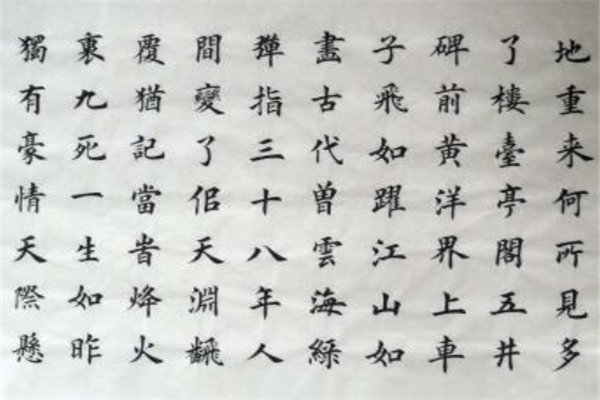 地重来何所見多
了樓臺亭閣五井
碑前黄洋界上車
子飛如躍江山如
畫古代曾雲海緑
彈指三十八年人
間變了佀天淵飜
覆猶記當旹烽火
裏九死一生如昨
獨有豪情天際懸